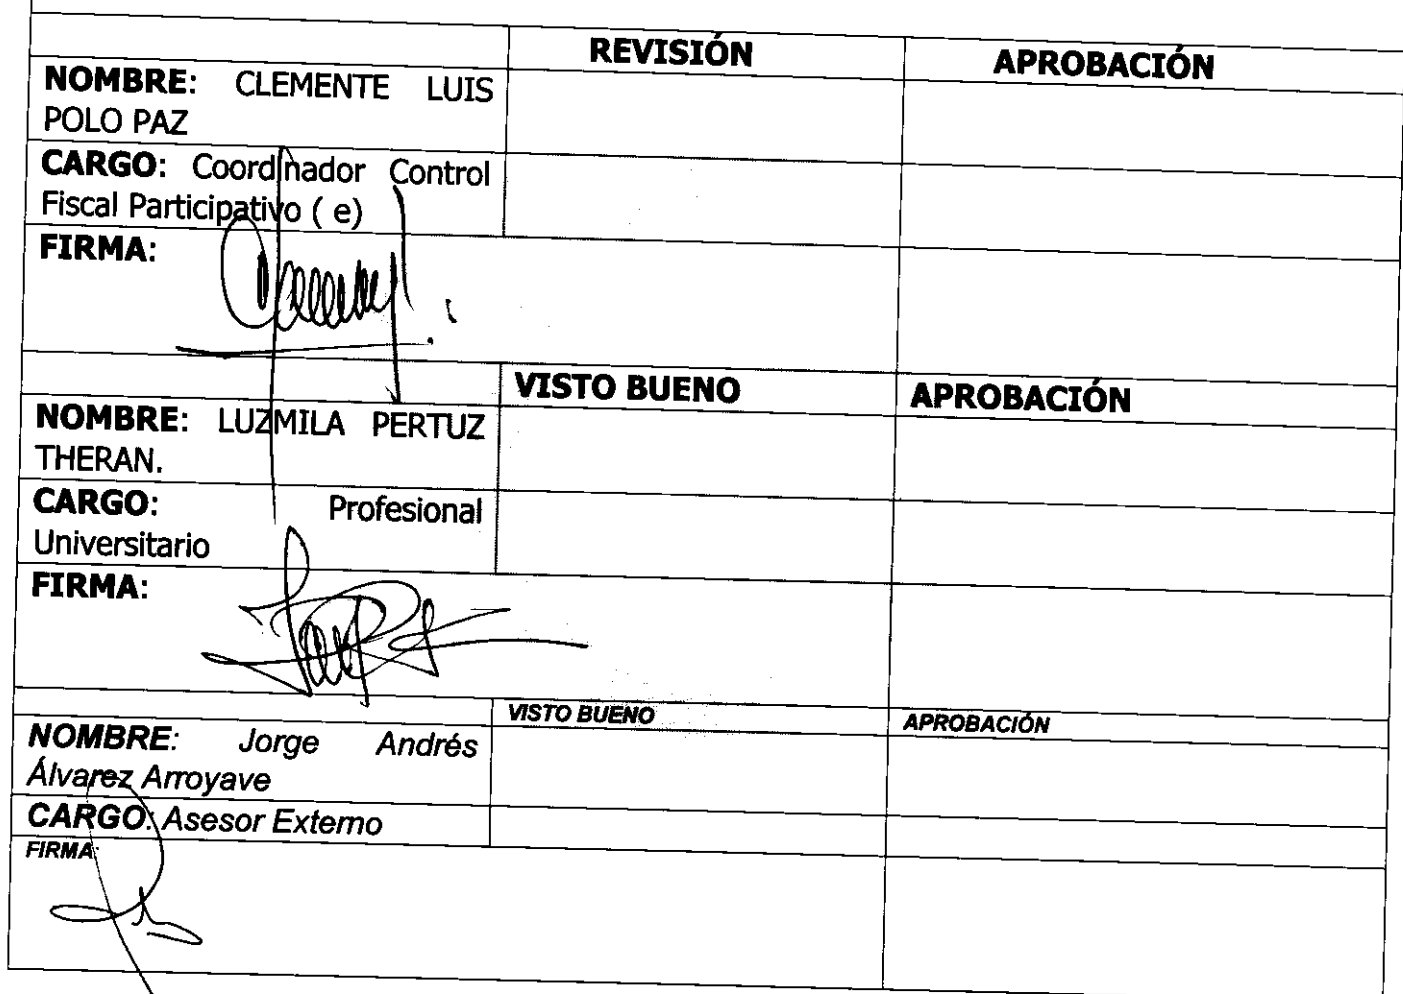 REVISIÓN APROBACIÓN
NOMBRE: CLEMENTE LUIS
POLO PAZ
CARGO: Coordinador Control
Fiscal Participativo ( e)
FIRMA:
VISTO BUENO APROBACIÓN
NOMBRE: LUZMILA PERTUZ
THERAN.
CARGO: Profesional
Universitario
FIRMA:
VISTO BUENO APROBACIÓN
NOMBRE: Jorge Andrés
Álvarez Arroyave
CARGO: Asesor Externo
FIRMA: